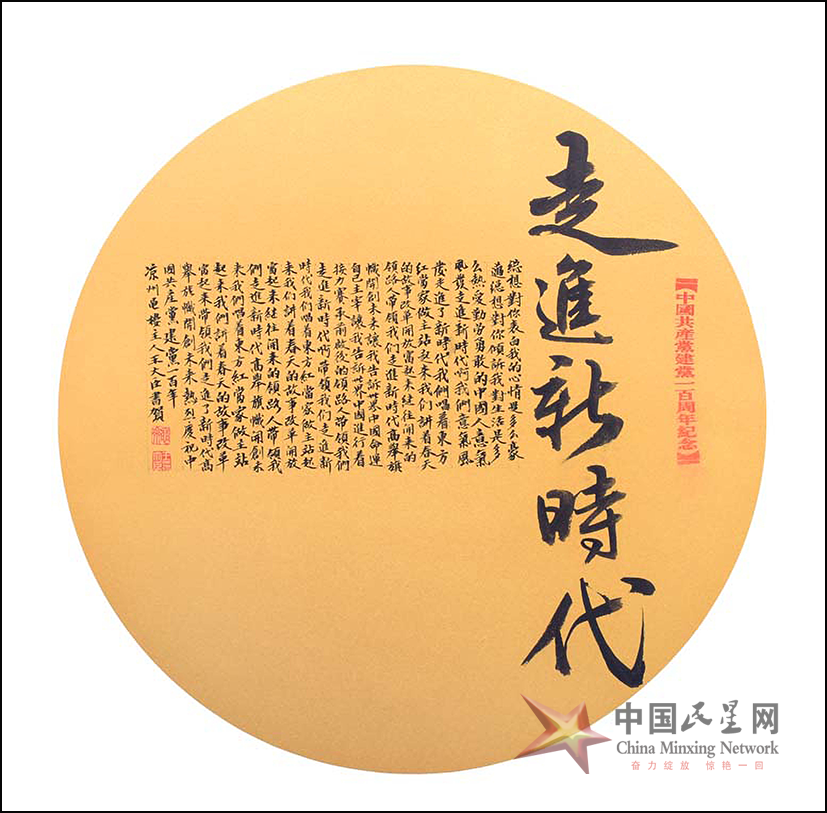 【中國共產黨建黨一百周年紀念】
走進新時代
總想對你表白我的心情是多么豪
邁總想對你傾訴我對生活是多
么熱愛勤勞勇敢的中國人意氣
風發走進新時代啊我們意氣風
發走進了新時代我們唱着東方
紅當家做主站起來我們講着春天
的故事改革開放富起來继往開來的
領路人帶領我們走進新時代高舉旗
幟開創未來讓我告訴世界中國命運
自己主宰讓我告訴世界中國進行着
接力賽承前啟後的領路人帶領我們
走進新時代啊帶領我們走進新
時代我們唱着東方紅當家做主站起
來我們講着春天的故事改革開放
富起來继往開來的領路人帶領我
們走進新時代高舉旗幟開創未
來我們唱着東方紅當家做主站
起來我們講着春天的故事改革
富起來帶領我們走進了新時代高
舉旗幟開創未來熱烈慶祝中
國共產黨建黨一百年
涼州 樓主人王大 書賀
中国民星网
China Minxing Network
奋力绽放 惊艳一回